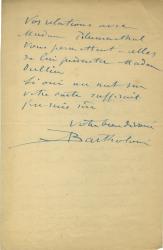 Vos relations avec
Madame Blumenthal
Vous permettent-elles
de lui présenter Madame
Dullin
Si oui un mot sur
votre carte suffirait
J'en suis sûr
Votre bien dévoué
Bartholomé